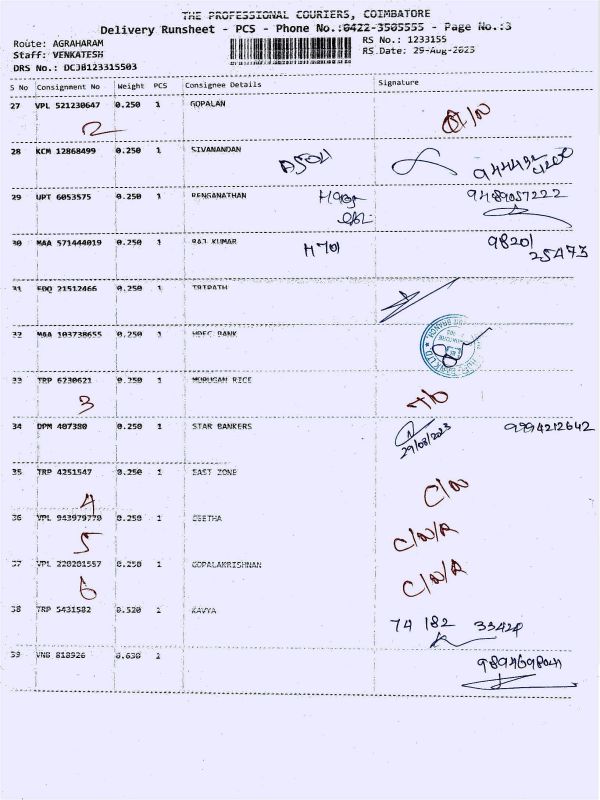 THE PROFESSIONAL COURIERS, COIMBATORE
Delivery Runsheet - PCS - Phone No.:0422-3505555 - Page No.:3
Route: AGRAHARAM
Staff: VENKATESH
DRS No.: DCJ0123315503
RS No.: 1233155
RS Date: 29-Aug-2023
S No Consignment No Weight PCS Consignee Details Signature
27 VPL 521230647 0.250 1 GOPALAN
2
28 KCM 12868499 0.250 1 SIVANANDAN
29 UPT 6053575 0.250 1 RENGANATHAN 9489057222
30 MAA 571444019 0.250 1 RAJ KUMAR H701 98201
25473
31 EOO 21512466 0.250 1
32 MAA 103738655 0.250 1 HDFC BANK
33 TRP 6230621 0.250 1 MURUGAN RICE
3
34 DPM 407380 0.250 1 STAR BANKERS 9994212642
29/08/2023
35 TRP 4251547 0.250 1 EAST ZONE
4 C/N
36 VPL 943979770 0.250 1 GEETHA
5 C/N/A
37 VPL 220201557 0.250 1 GOPALAKRISHNAN
6 C/N/A
38 TRP 5431582 0.520 1 KAVYA
74 182 33424
39 VNB 818926 0.630 1